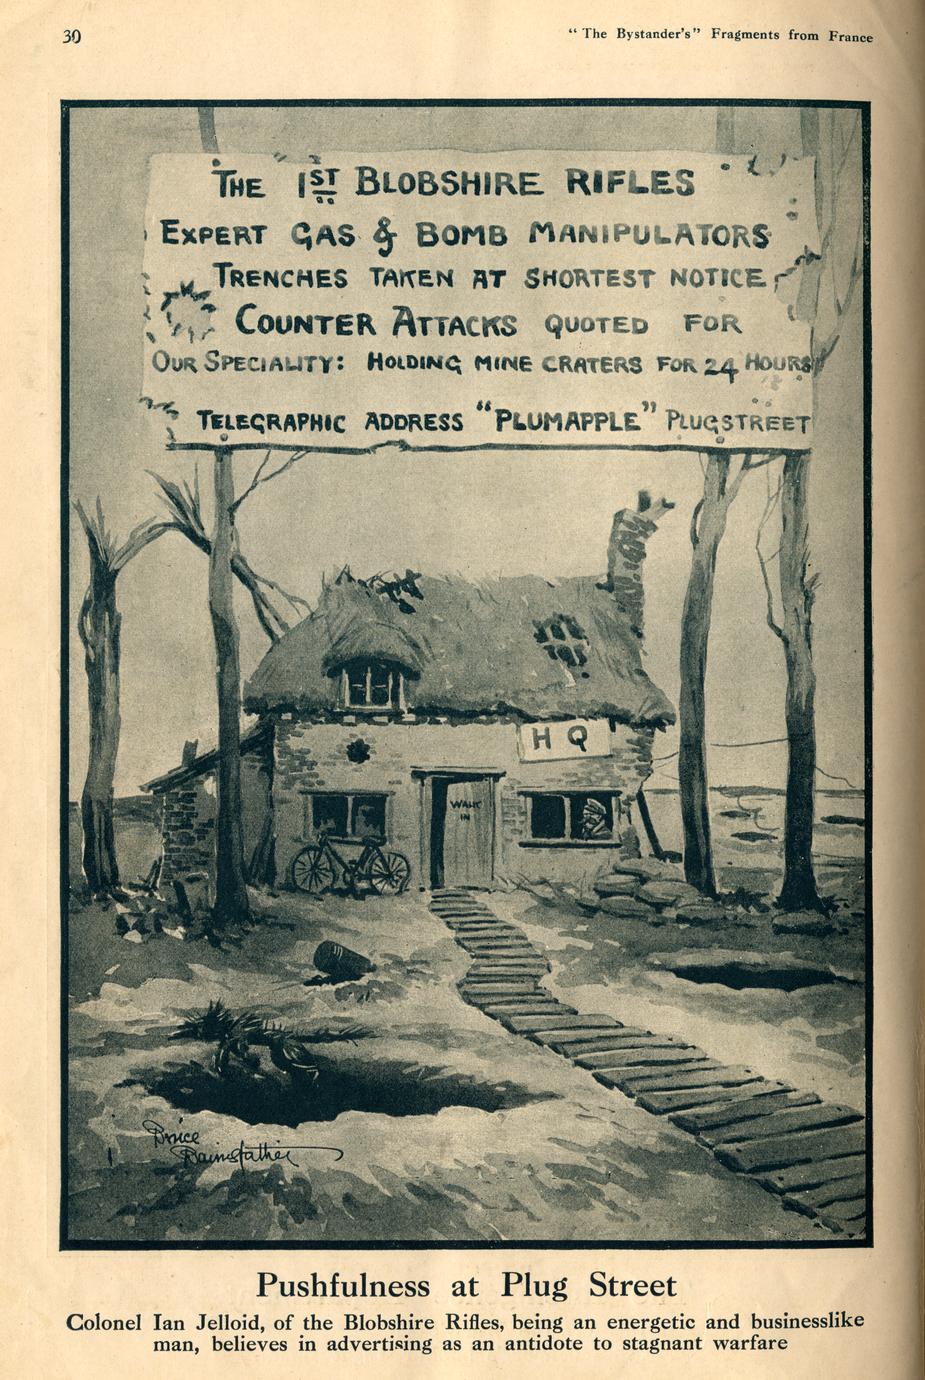 30
"The Bystander's" Fragments from France
THE 1ST BLOBSHIRE RIFLES
EXPERT GAS & BOMB MANIPULATORS
TRENCHES TAKEN AT SHORTEST NOTICE
COUNTER ATTACKS QUOTED FOR
OUR SPECIALITY: HOLDING MINE CRATERS FOR 24 HOURS
TELEGRAPHIC ADDRESS "PLUMAPPLE" PLUGSTREET
H Q
WALK
IN
Bruce
Bairnsfather
Pushfulness at Plug Street
Colonel Ian Jelloid, of the Blobshire Rifles, being an energetic and businesslike
man, believes in advertising as an antidote to stagnant warfare